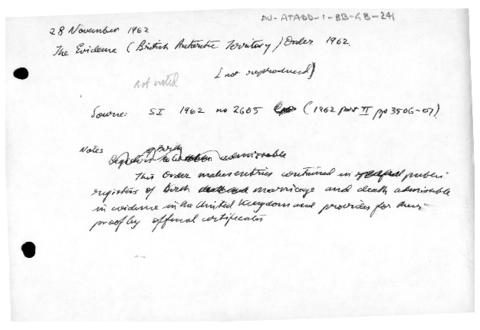 AU-ATADD-1-BB-GB-241
28 November 1962
The Evidence (British Antarctic Territory) Order 1962
[not reproduced]
not noted
Source: SI 1962 no 2605 (1962 part II pp 3506-07)
Notes
of Birth
admissible
This Order makes entries contained in public
registers of birth marriage and death admissible
in evidence in the United Kingdom and provides for their
proof by official certificates